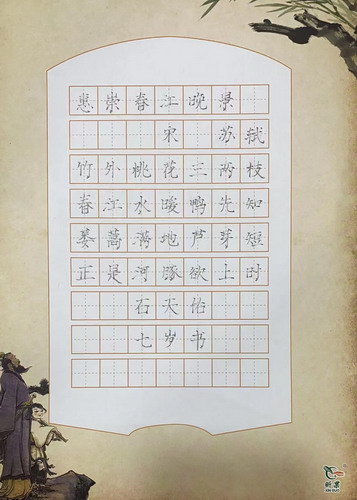 惠崇春江晚景
宋 苏轼
竹外桃花三两枝
春江水暖鸭先知
蒌蒿满地芦芽短
正是河豚欲上时
石天佑
七岁书